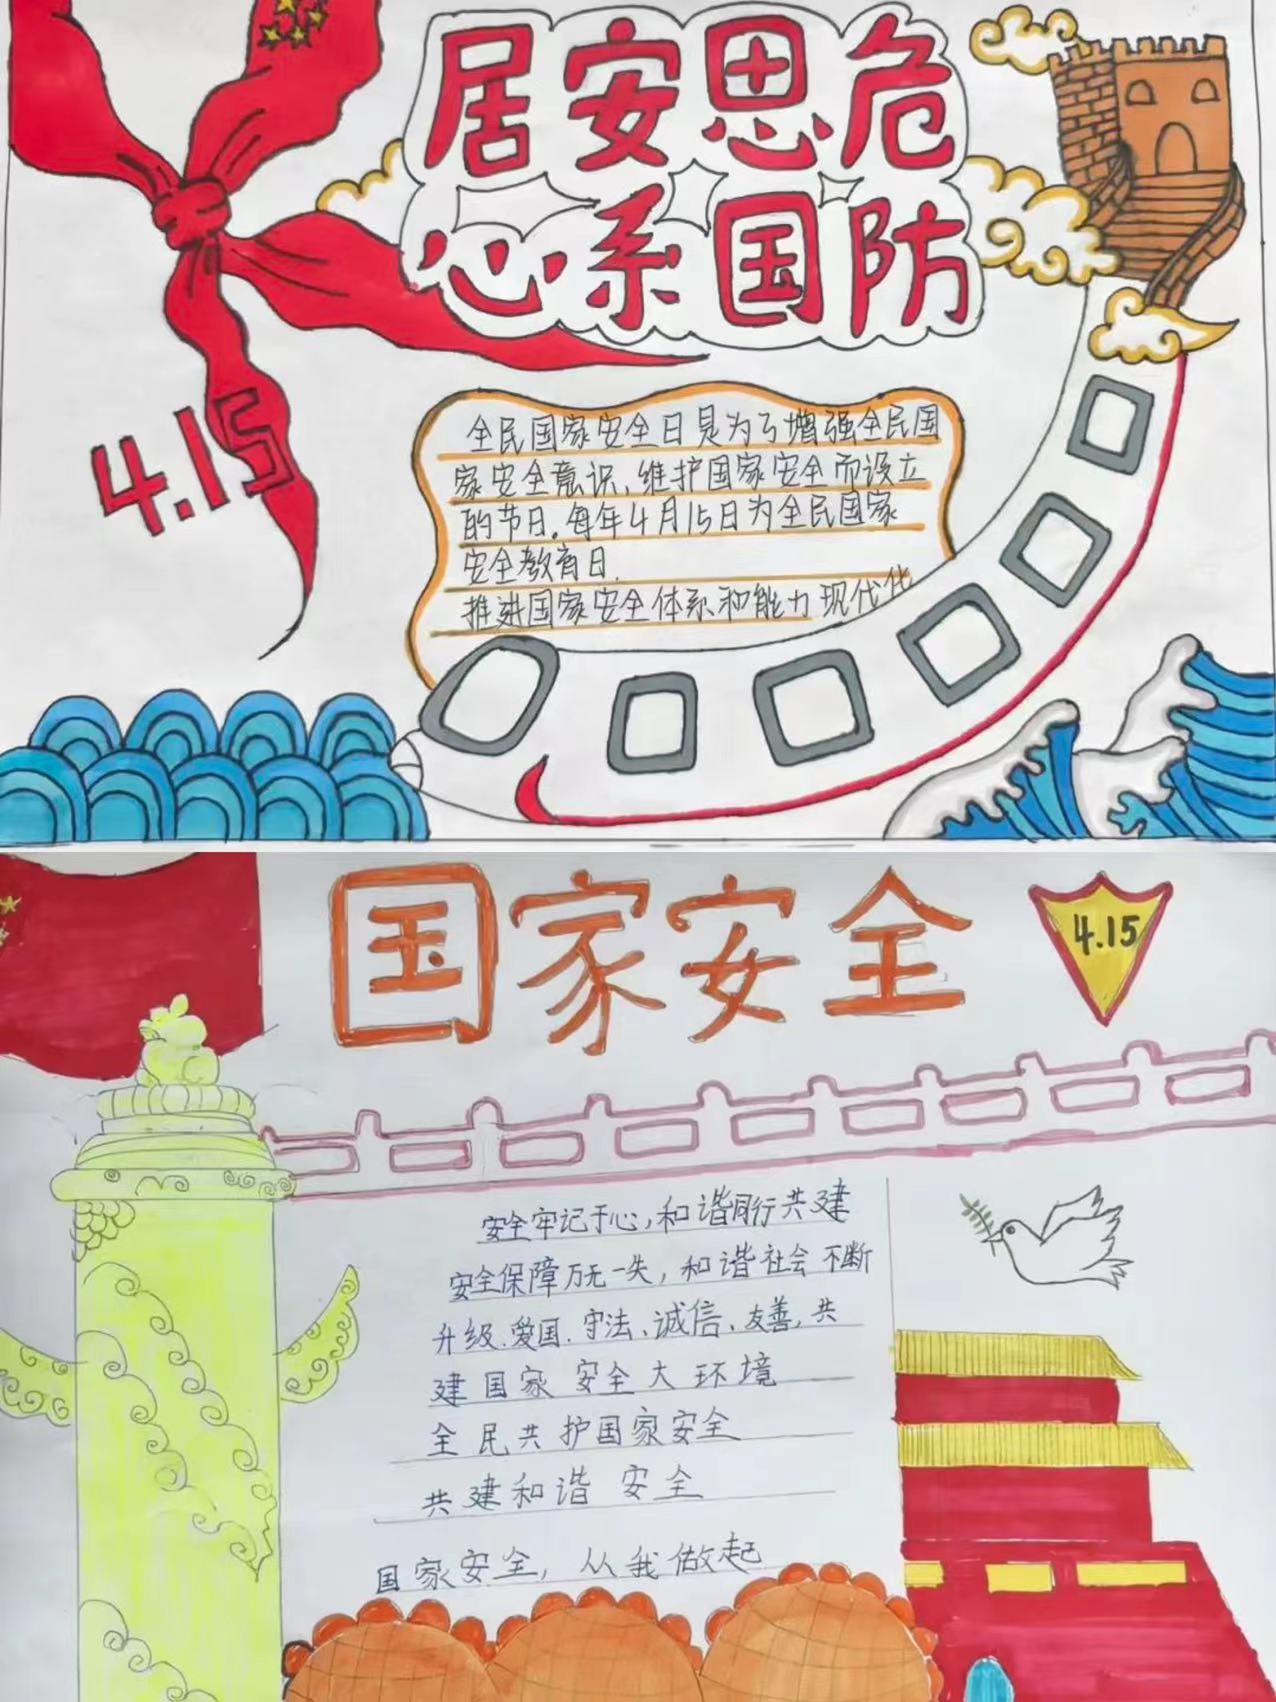 居安思危
心系国防
4.15
全民国家安全日是为了增强全民国
家安全意识、维护国家安全而设立
的节日。每年4月15日为全民国家
安全教育日.
推进国家安全体系和能力现代化
国家安全
4.15
安全牢记于心，和谐同行共建
安全保障万无一失，和谐社会不断
升级.爱国.守法、诚信、友善，共
建国家安全大环境
全民共护国家安全
共建和谐 安全
国家安全，从我做起